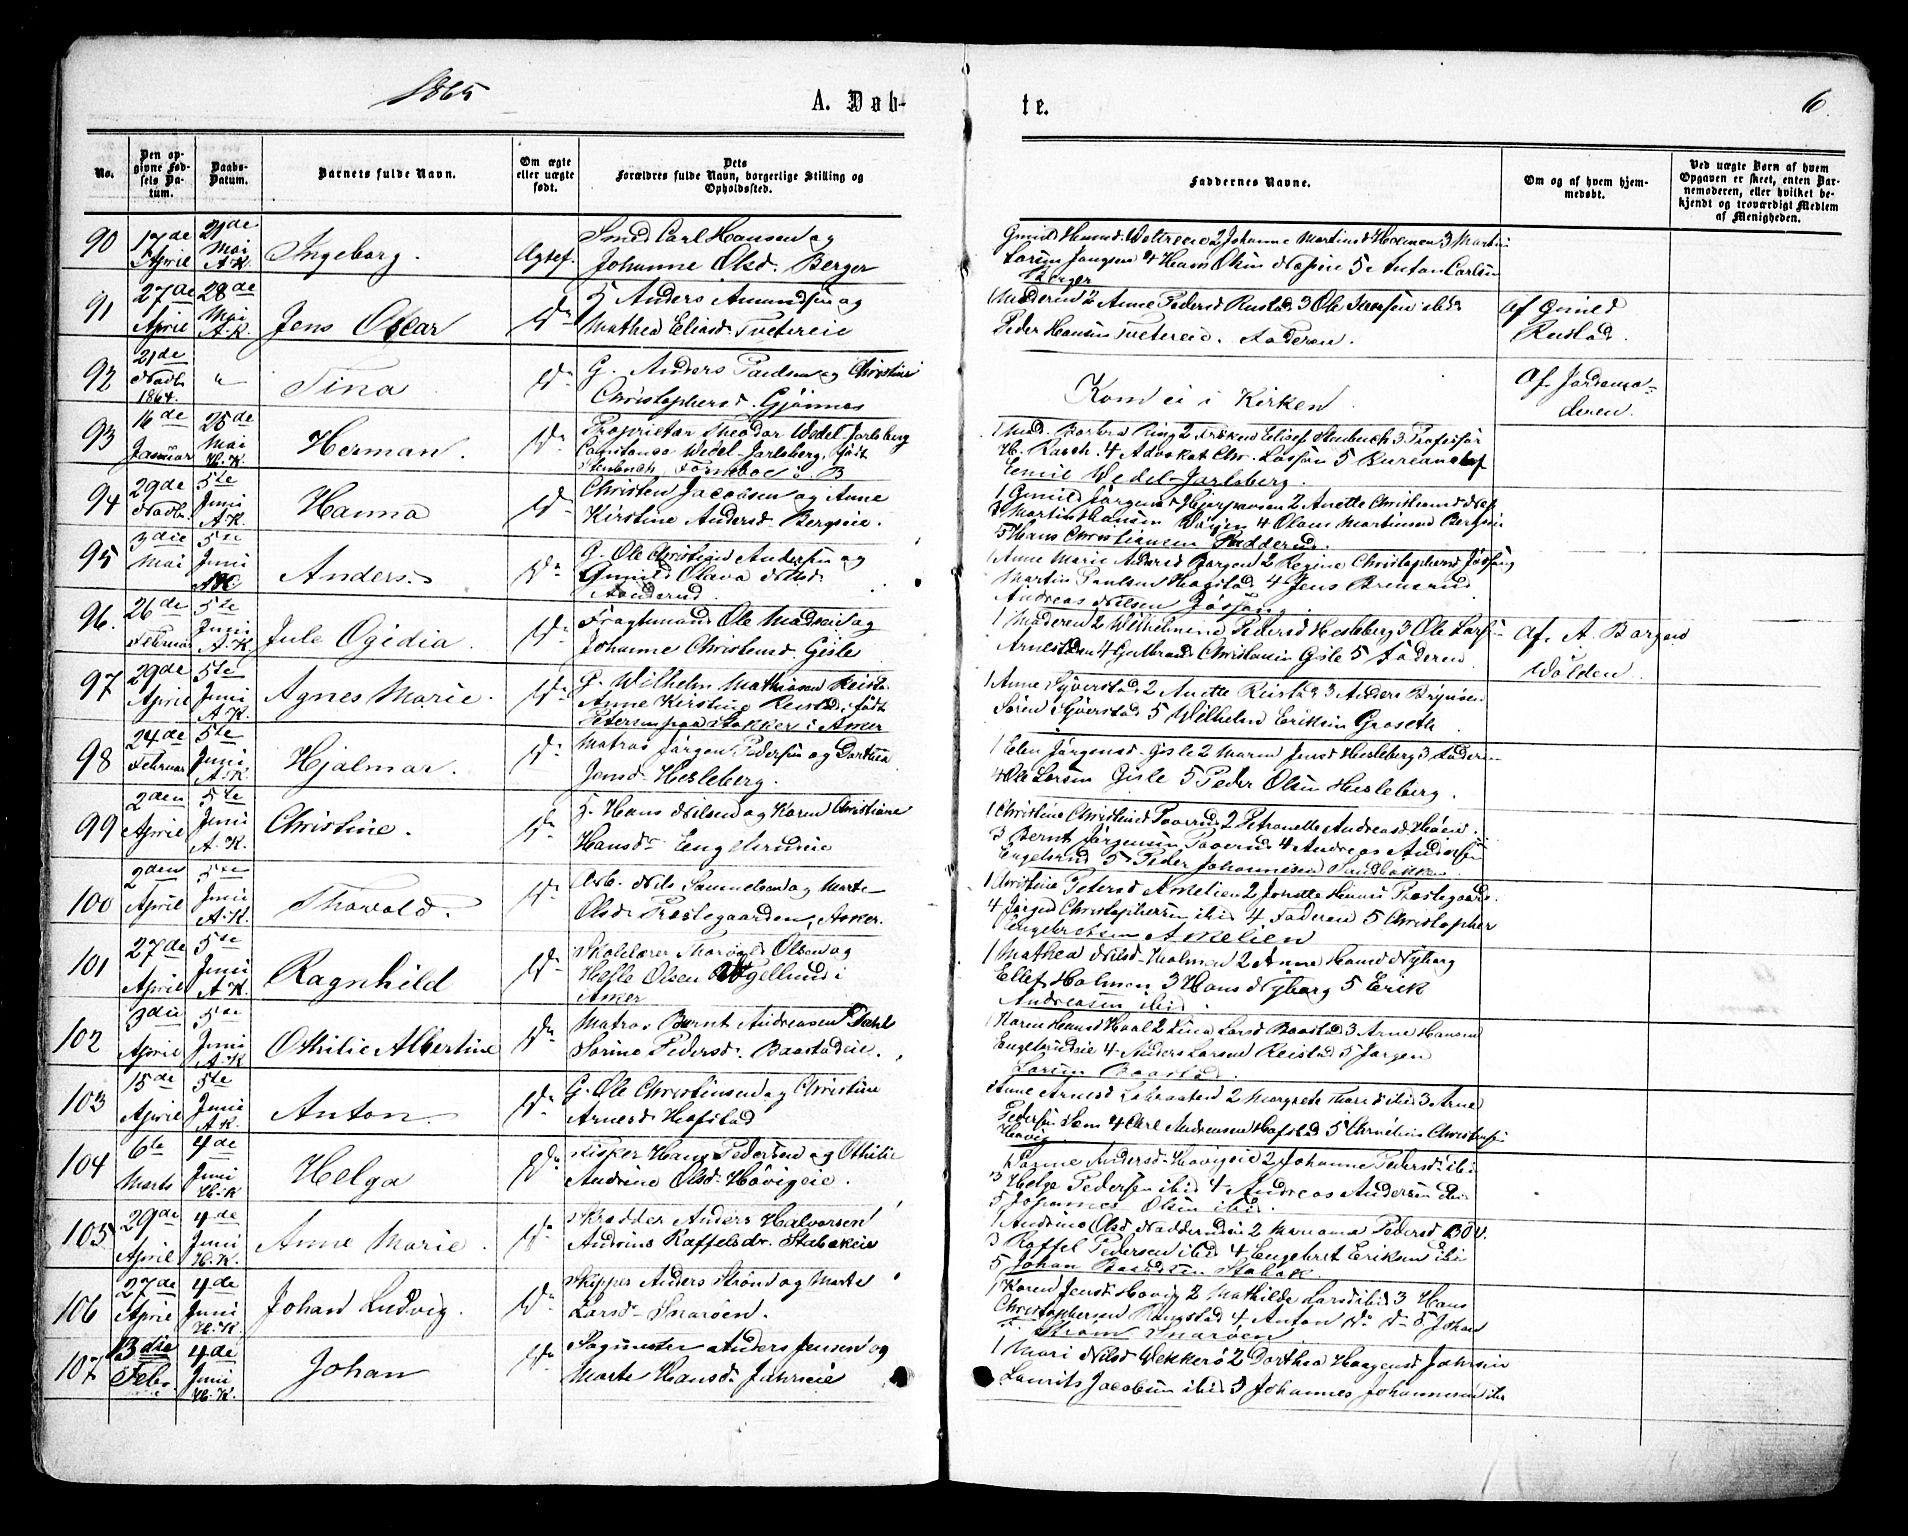 1865
A. Døb-
te.
6.
No.
Den op-
givne Fød-
sels Da-
tum.
Daabs-
Datum.
Barnets fulde Navn.
Om ægte
eller uægte
født.
Dets
Forældres fulde Navn, borgerlige Stilling og
Opholdssted.
Faddernes Navne.
Om og af hvem hjem-
medøbt.
Ved uægte Børn af hvem
Opgaven er skeet, enten Bar-
nemoderen, eller hvilket be-
kjendt og troværdigt Medlem
af Menigheden.
90
17de
April
21de
Mai
A.K.
Ingeborg.
Ægtef.
Smed Carl Hansen og
Johanne Olsd. Berger
Johanne Martinsd Holmen 3 Martin
5 Anton Carlsen
Berger
91
27de
April
28de
Mai
A.K.
Jens Oscar
Do
H. Anders Amundsen og
Mathea Eliasd. Tvetereie
1 Moderen 2 Anne Pedersd Rustad 3 Ole Iversen ibid
Peder Hansen Tvetereie. Faderen.
af Gunild
Rustad.
92
21de
Novb.
1864.
"
Tina
Do
G. Anders Paulsen og Christine
Christophersd. Gjønnes
Kom ei i Kirken
Af Jordemo-
deren.
93
16de
Januar
25de
Mai
H.K.
Herman.
Do
Proprietær Theodor Wedel Jarlsberg
Constance Wedel-Jarlsberg, født
Stenbuch, Forneboe i B
1 Mad. Barbra Ring 2 Frøken Elisef Stenbuch 3 Professor
H. Rasch. 4 Advokat Chr. Lassen 5 Bureauchef
Emil Wedel-Jarlsberg.
94
29de
Novbr.
5te
Juni
A.K.
Hanna
Do
Christen Jacobsen og Anne
Kirstine Andersd. Bergseie.
2 Anette Christiansd
3 Martin Hansen 4 Olaus Martinsen Bergseie
5 Hans Christiansen Padderud.
95
3die
Mai
5te
Juni
A.K.
Anders.
Do
G. Ole Christian Andersen og
Gunild Olava Nilsd.
1 Anne Marie Andersd Borgen 2 Regine Christophersd Jøssong
Martin Paulsen Hogstad 4 Jens Brensrud
Andreas Nilsen Jøssong.
96.
26de
Februar
5te
Juni
A.K.
Jule Ogidia.
Do
Fragtmand Ole Madsen og
Johanne Christensd Gisle
1 Moderen 2 Wilhelmine Pedersd Hesleberg 3 Ole Larsen
Arnestaden 4 Gulbrand Christensen Gisle 5 Faderen
af A. Borgen
Wolden.
97
29de
April
5te
Juni
A.K.
Agnes Marie.
Do
G. Wilhelm Mathiasen Reistad
Anne Kirstine Reistad, født
Petersen paa Stokker i Asker
1 Anne Syverstad 2 Anette Reistad 3 Anders Brynsen
Søren Syverstad 5 Wilhelm Eriksen Groseth
98
24de
Februar
5te
Juni
A.K.
Hjalmar.
Do
Matros Jørgen Pedersen og Dorthea
Jensd. Hesleberg.
1 Elen Jørgensd. Gisle 2 Maren Jensd Hesleberg 3 Faderen
4 Ole Larsen Gisle 5 Peder Olsen Hesleberg.
99
2den
April
5te
Juni
A.K.
Christine.
Do
H. Hans Nilsen og Karen Christiane
Hansdr Engelsrudeie
1 Christine Christensd Toverud 2 Petronette Andreasd Høien.
3 Bernt Jørgensen Toverud 4 Andreas Andersen
Engelsrud 5 Peder Johannesen Sandbakken
100
2den
April
5te
Juni
A.K.
Thorvald.
Do
Arb. Nils Samuelsen og Marte
Olsd. Præstegaarden, Asker.
1 Christine Petersd Amelien 2 Jonette Hansd Præstegaard.
4 Jørgen Christophersen ibid 4 Faderen 5 Christopher
Engebretsen Amelien
101
27de
April
5te
Juni
A.K.
Ragnhild
Do
Skolelærer Thorvald Olsen og
Helle Olsen i
Asker
1 Mathea Nilsd Holmen 2 Anne Hansd Nyborg
Ellef Holmen 3 Hans Nyborg 5 Erik
Andreasen ibid.
102
3die
April
5te
Juni
A.K.
Othilie Albertine
Do
Matros Bernt Andreasen Dahl
Sorine Pedersd. Baastadeie.
1 Karen Hansd Hoel 2 Lina Larsd Baastad 3 Arne Hansen
Engelsrudeie 4 Anders Larsen Reistad 5 Jørgen
Larsen Baastad.
103
15de
April
5te
Juni
A.K.
Anton.
Do
G. Ole Christensen og Christine
Arnesd. Hofstad
2 Margrete ibid 3 Arne
Pedersen Sem 4 Carl Andreasen Hofstad 5 Cornelius Christensen
Høvig
104
6te
Marts
4de
Juni
H.K.
Helga
Do
Fisker Hans Pedersen og Othilie
Andrine Olsd. Høvigeie.
1 Sorine Andersd. Høvigeie 2 Johanne Pedersd. ibid
3 Helge Pedersen ibid 4 Andreas Andersen ibid
5 Johannes Olsen ibid.
105
29de
April
4de
Juni
H.K.
Anne Marie.
Do
Skrædder Anders Halvorsen
Andrine Raffelsdr. Stabækeie
1 Andrine Olsd Nadderudeie 2 Mariana Pedersd
3 Raffel Pedersen ibid 4 Engebret Eriksen ibid
5 Johan Stabæk.
106
27de
April
4de
Juni
H.K.
Johan Ludvig.
Do
Skipper Anders Strøm og Marte
Larsd. Snarøen.
1 Karen Jensd Høvig 2 Mathilde Larsd ibid 3 Hans
Christophersen Ringstad 4 Anton Do Do 5 Johan
Strøm Snarøen
107
13die
Febr.
4de
Juni
H.K.
Johan
Do
Sagmester Anders Jensen og
Marte Hansd. Jahreie
1 Mari Nilsd Wækkerø 2 Dorthea Haagensd Jahreie
Laurits Jacobsen ibid 5 Johannes Johannesen ibid